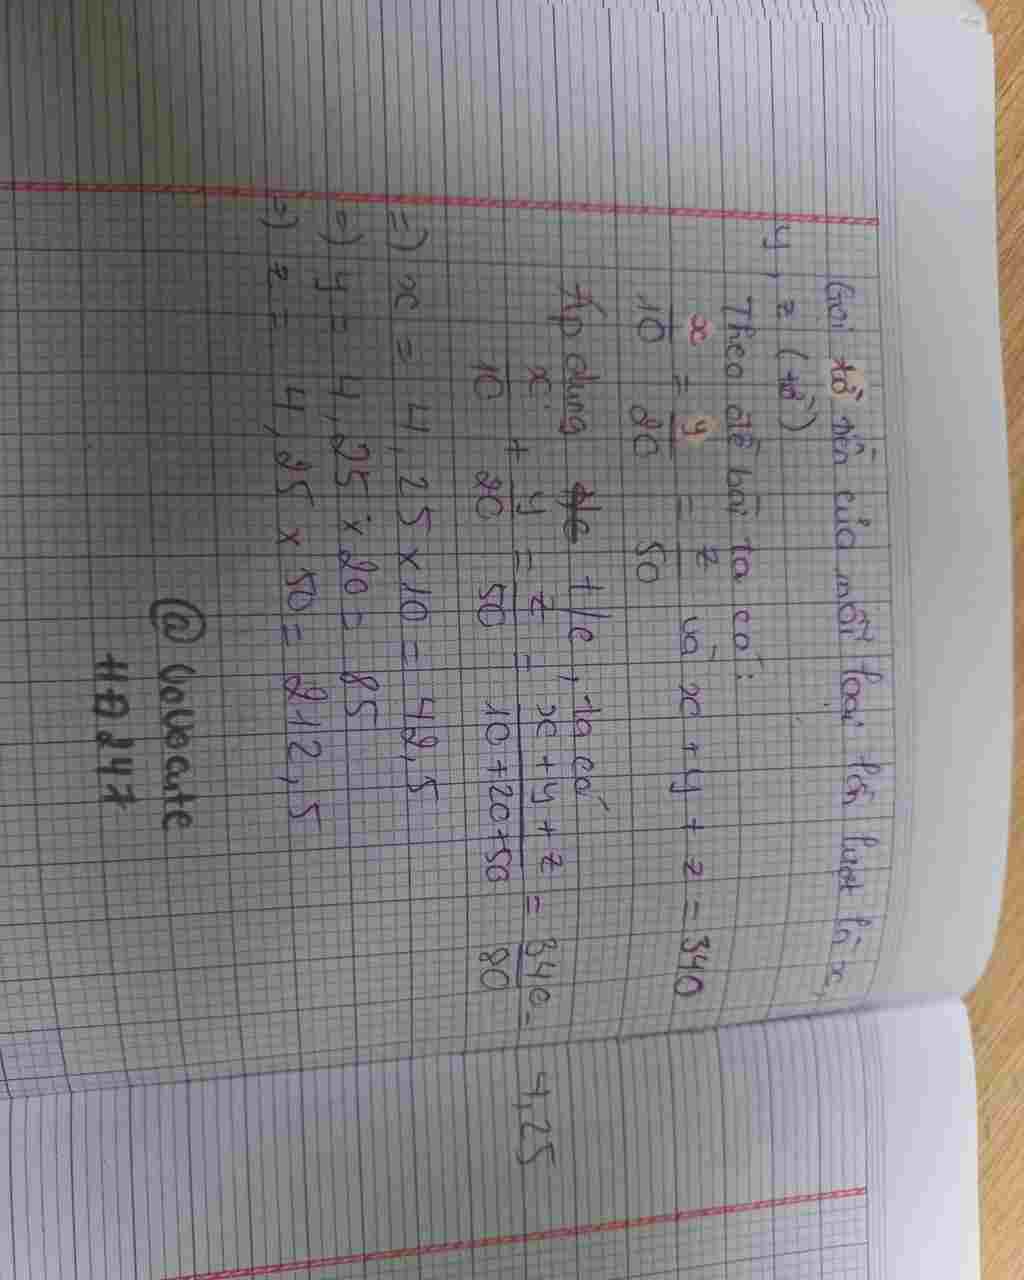 Gọi tờ tiền của mỗi loại lần lượt là x,
y, z (tờ)
Theo đề bài ta có:
x/10 = y/20 = z/50 và x + y + z = 340
Áp dụng t/c, ta có
x/10 + y/20 = z/50 = x+y+z/10+20+50 = 340/80 = 4,25
=) x = 4,25 × 10 = 42,5
=) y = 4,25 × 20 = 85
=) z = 4,25 × 50 = 212,5
@VoVoante
HD247